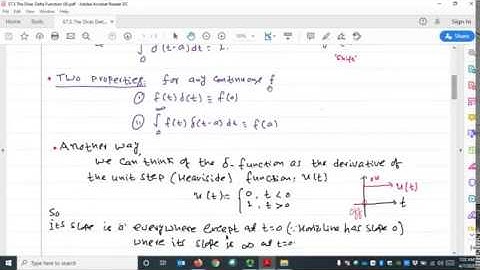 §7.5 The Dirac Delta Function (II).pdf - Adobe Acrobat Reader DC
File Edit View Window Help
Home Tools
Sign In
∫ δ(t-a)dt = 1.
0
"Shift"
• Two Properties: for any continuous f
(i) f(t) δ(t) = f(0)
∞
(ii) ∫ f(t) δ(t-a) dt = f(a)
0
• Another way,
We can think of the δ-function as the derivative of
the unit step (Heaviside) function, u(t)
u(t) = { 0, t < 0
1, t > 0
on
u(t)
off
t
So
its slope is 0 everywhere except at t=0 (∵ Horiz line has slope 0)
where its slope is ∞ at t=0
Type here to search